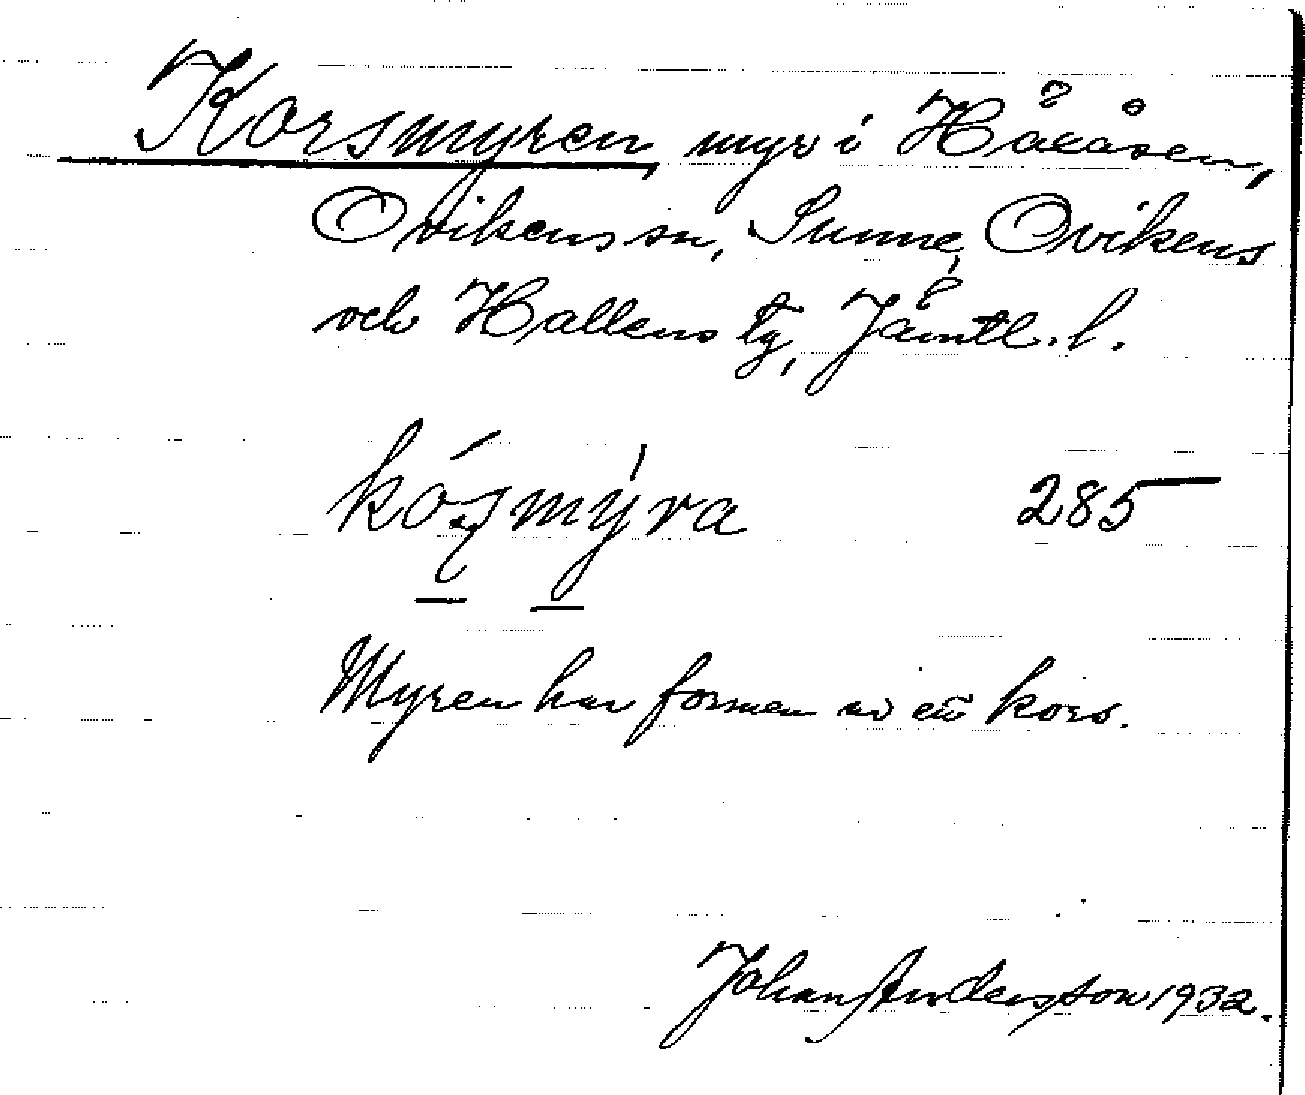 Korsmyren, myr i Hååsen,
Ovikens sn, Sunne, Ovikens
och Hallens tg, Jämtl. l.
myra 285
Myren har formen av ett kors.
Johan Andersson 1932.